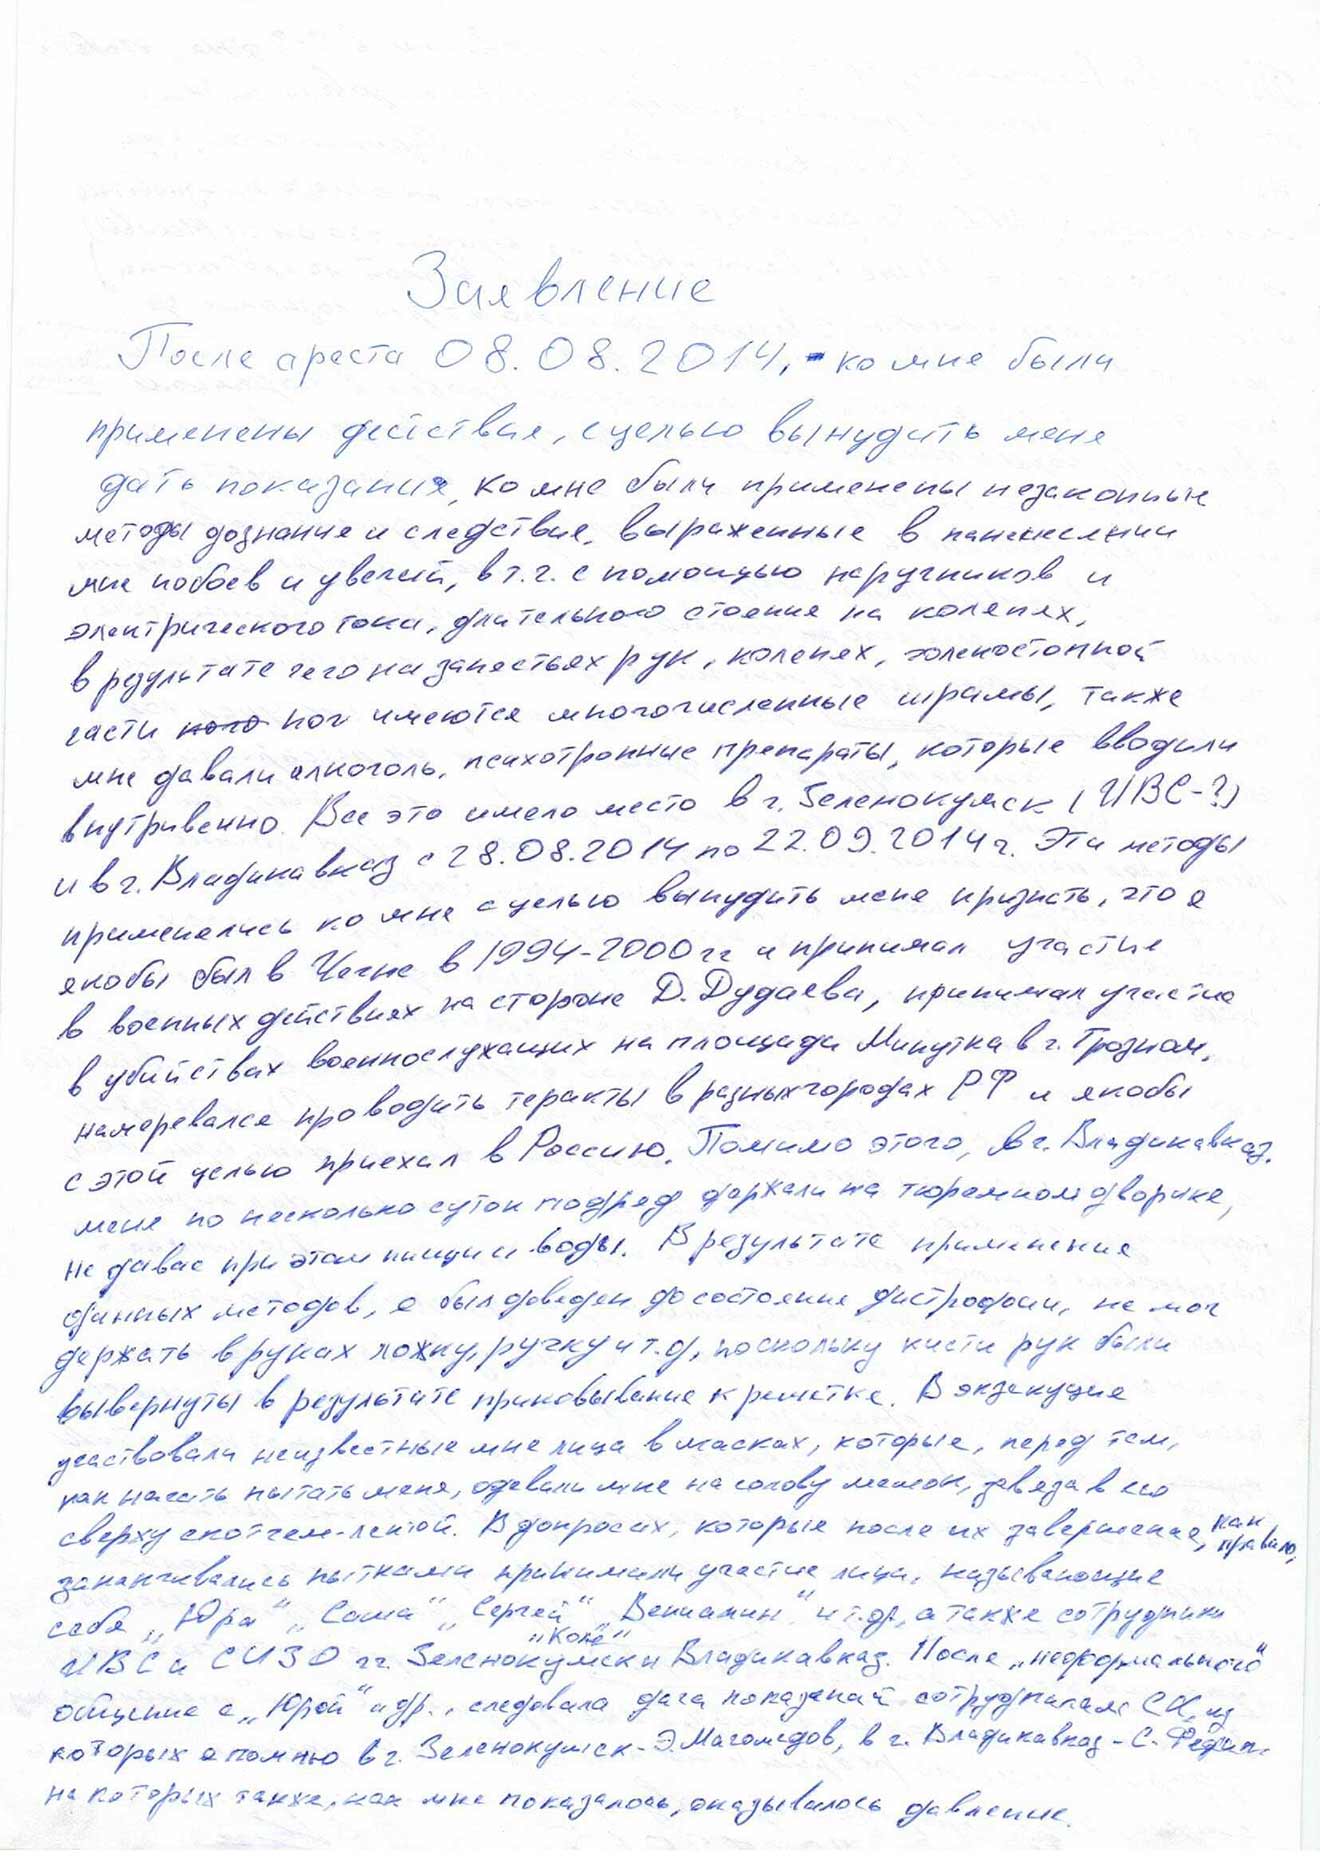 Заявление
После ареста 08.08.2014, ко мне были
применены действия, с целью вынудить меня
дать показания, ко мне были применены незаконные
методы дознания и следствия, выраженные в нанесении
мне побоев и увечий, в т.ч. с помощью наручников и
электрического тока, длительного стояния на коленях,
в результате чего на запястьях рук, коленях, голеностопной
части ног имеются многочисленные шрамы, также
мне давали алкоголь, психотропные препараты, которые вводили
внутривенно. Все это имело место в г. Зеленокумск (ИВС-?)
и в г. Владикавказ с 28.08.2014 по 22.09.2014 г. Эти методы
применялись ко мне с целью вынудить меня признать, что я
якобы был в Чечне в 1994-2000 гг и принимал участие
в военных действиях на стороне Д. Дудаева, принимал участие
в убийствах военнослужащих на площади Минутка в г. Грозном,
намеревался проводить теракты в разных городах РФ и якобы
с этой целью приехал в Россию. Помимо этого, в г. Владикавказ.
меня по несколько суток подряд держали на тюремном дворике,
не давая при этом пищи и воды. В результате применения
данных методов, я был доведен до состояния дистрофии, не мог
держать в руках ложку, ручку и т.д, поскольку кисти рук были
вывернуты в результате приковывания к решетке. В экзекуциях
участвовали неизвестные мне лица в масках, которые, перед тем,
как начать пытать меня, одевали мне на голову мешок, завязав его
сверху скотчем-лентой. В допросах, которые после их завершения, как правило,
заканчивались пытками принимали участие лица, называющие
себя „Юра“ „Саша“ „Сергей“ „Вениамин“ „Коля“ и т.д, а также сотрудники
ИВС и СИЗО гг. Зеленокумск и Владикавказ. После „неформального“
общения с „Юрой“ и др., следовала дача показаний сотрудникам СК, из
которых я помню в г. Зеленокумск - Э. Магомедов, в г. Владикавказ - С.
на которых также, как мне показалось, оказывалось давление.